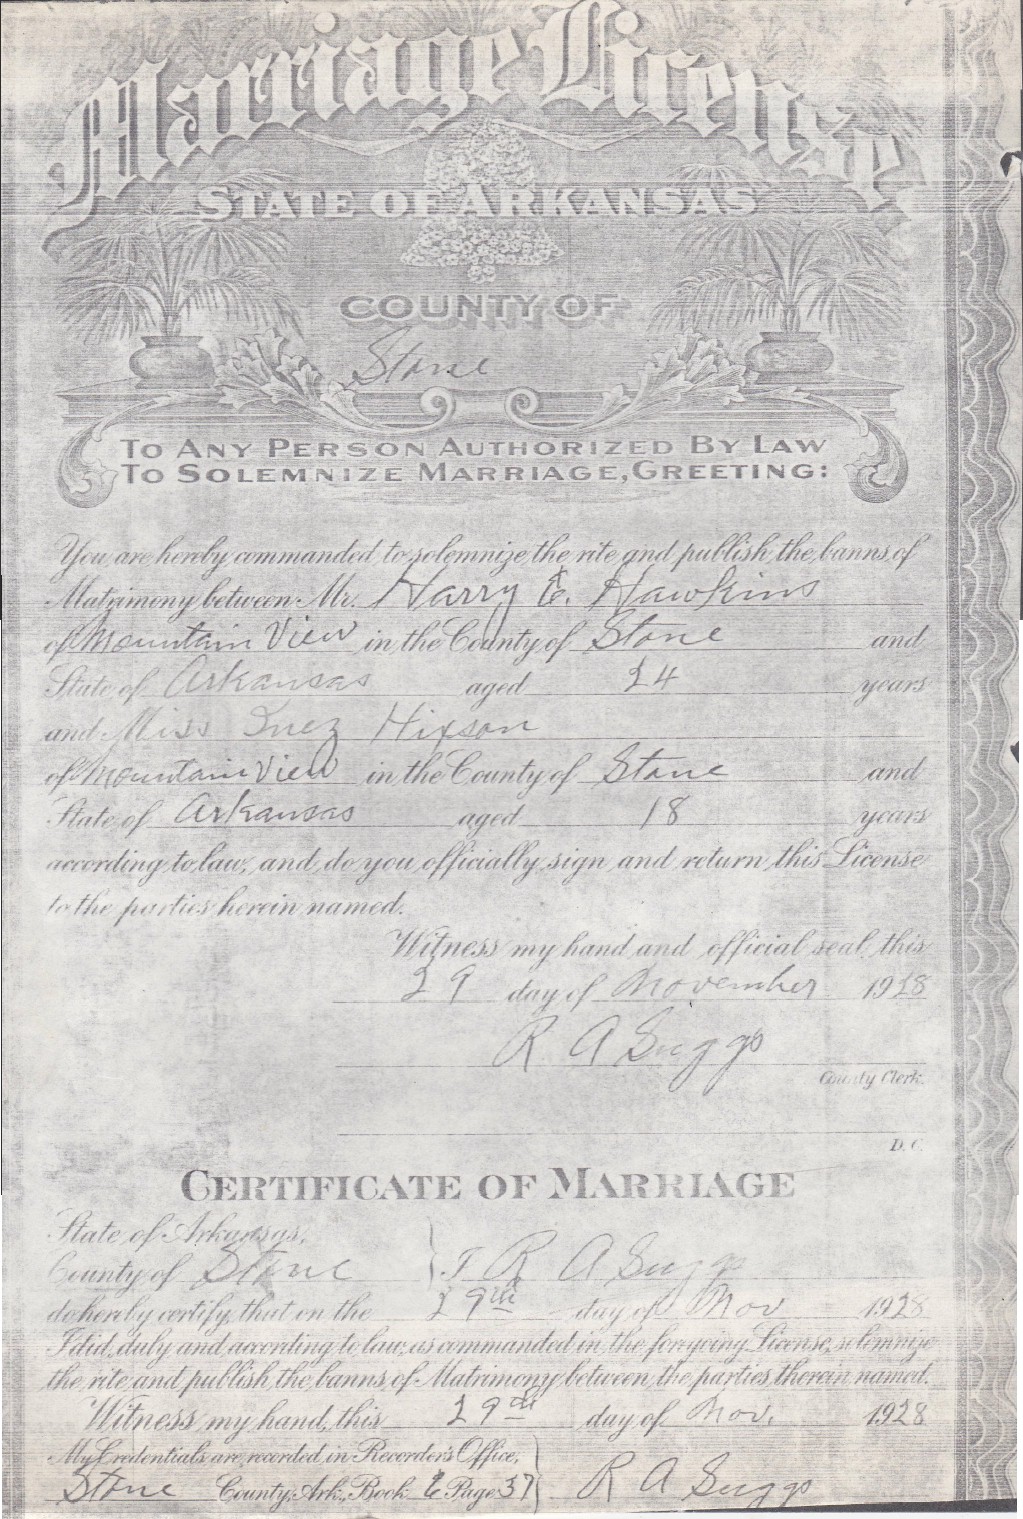 Marriage License
STATE OF ARKANSAS
COUNTY OF
Stone
TO ANY PERSON AUTHORIZED BY LAW
TO SOLEMNIZE MARRIAGE, GREETING:
You are hereby commanded to solemnize the rite and publish the banns of
Matrimony between Mr. Harry E. Hawkins
of Mountain View in the County of Stone and
State of Arkansas aged 24 years
and Miss Inez Hixson
of Mountain View in the County of Stone and
State of Arkansas aged 18 years
according to law, and do you officially sign and return this License
to the parties herein named.
Witness my hand and official seal, this
29 day of November 1928
R A Suggs
County Clerk.
D. C.
CERTIFICATE OF MARRIAGE
State of Arkansas,
County of Stone } I R A Suggs
do hereby certify, that on the 29th day of Nov 1928
I did, duly and according to law, as commanded in the foregoing License, solemnize
the rite and publish the banns of Matrimony between the parties therein named.
Witness my hand, this 29th day of Nov. 1928
My Credentials are recorded in Recorder's Office,
Stone County, Ark., Book E Page 37 } R A Suggs